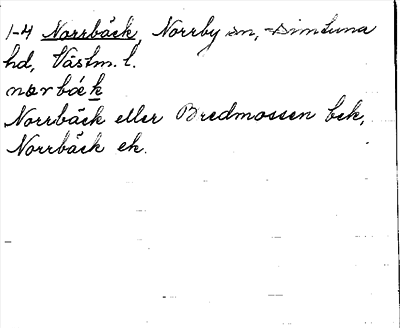 1-4 Norrbäck, Norrby sn, Simtuna
hd, Västm. l.
norbäk
Norrbäck eller Bredmossen bek,
Norrbäck ek.